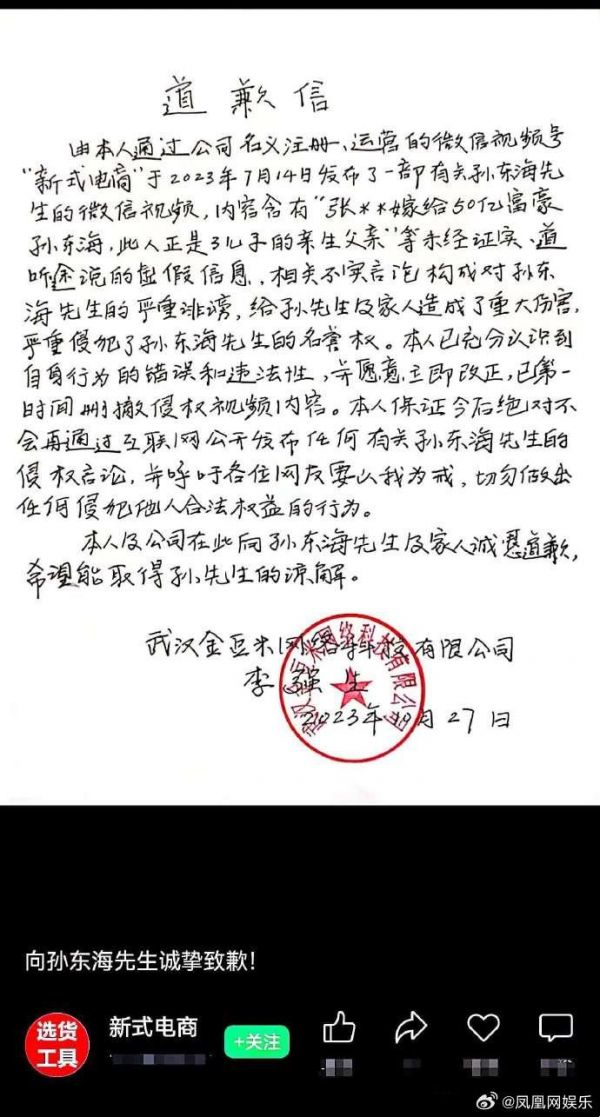 道歉信
由本人通过公司名义注册、运营的微信视频号
"新式电商"于2023年7月14日发布了一部有关孙东海先
生的微信视频,内容含有"张**嫁给50亿富豪
孙东海,此人正是3儿子的亲生父亲"等未经证实、道
听途说的虚假信息,相关不实言论构成对孙东
海先生的严重诽谤,给孙先生及家人造成了重大伤害,
严重侵犯了孙东海先生的名誉权。本人已充分认识到
自身行为的错误和违法性,并愿意立即改正,已第一
时间删撤侵权视频内容。本人保证今后绝对不
会再通过互联网公开发布任何有关孙东海先生的
侵权言论,并呼吁各位网友要以我为戒,切勿做出
任何侵犯他人合法权益的行为。
本人及公司在此向孙东海先生及家人诚恳道歉,
希望能取得孙先生的谅解。
武汉金豆米网络科技有限公司
李强生
2023年10月27日
向孙东海先生诚挚致歉!
选货
工具
新式电商
+关注
@凤凰网娱乐